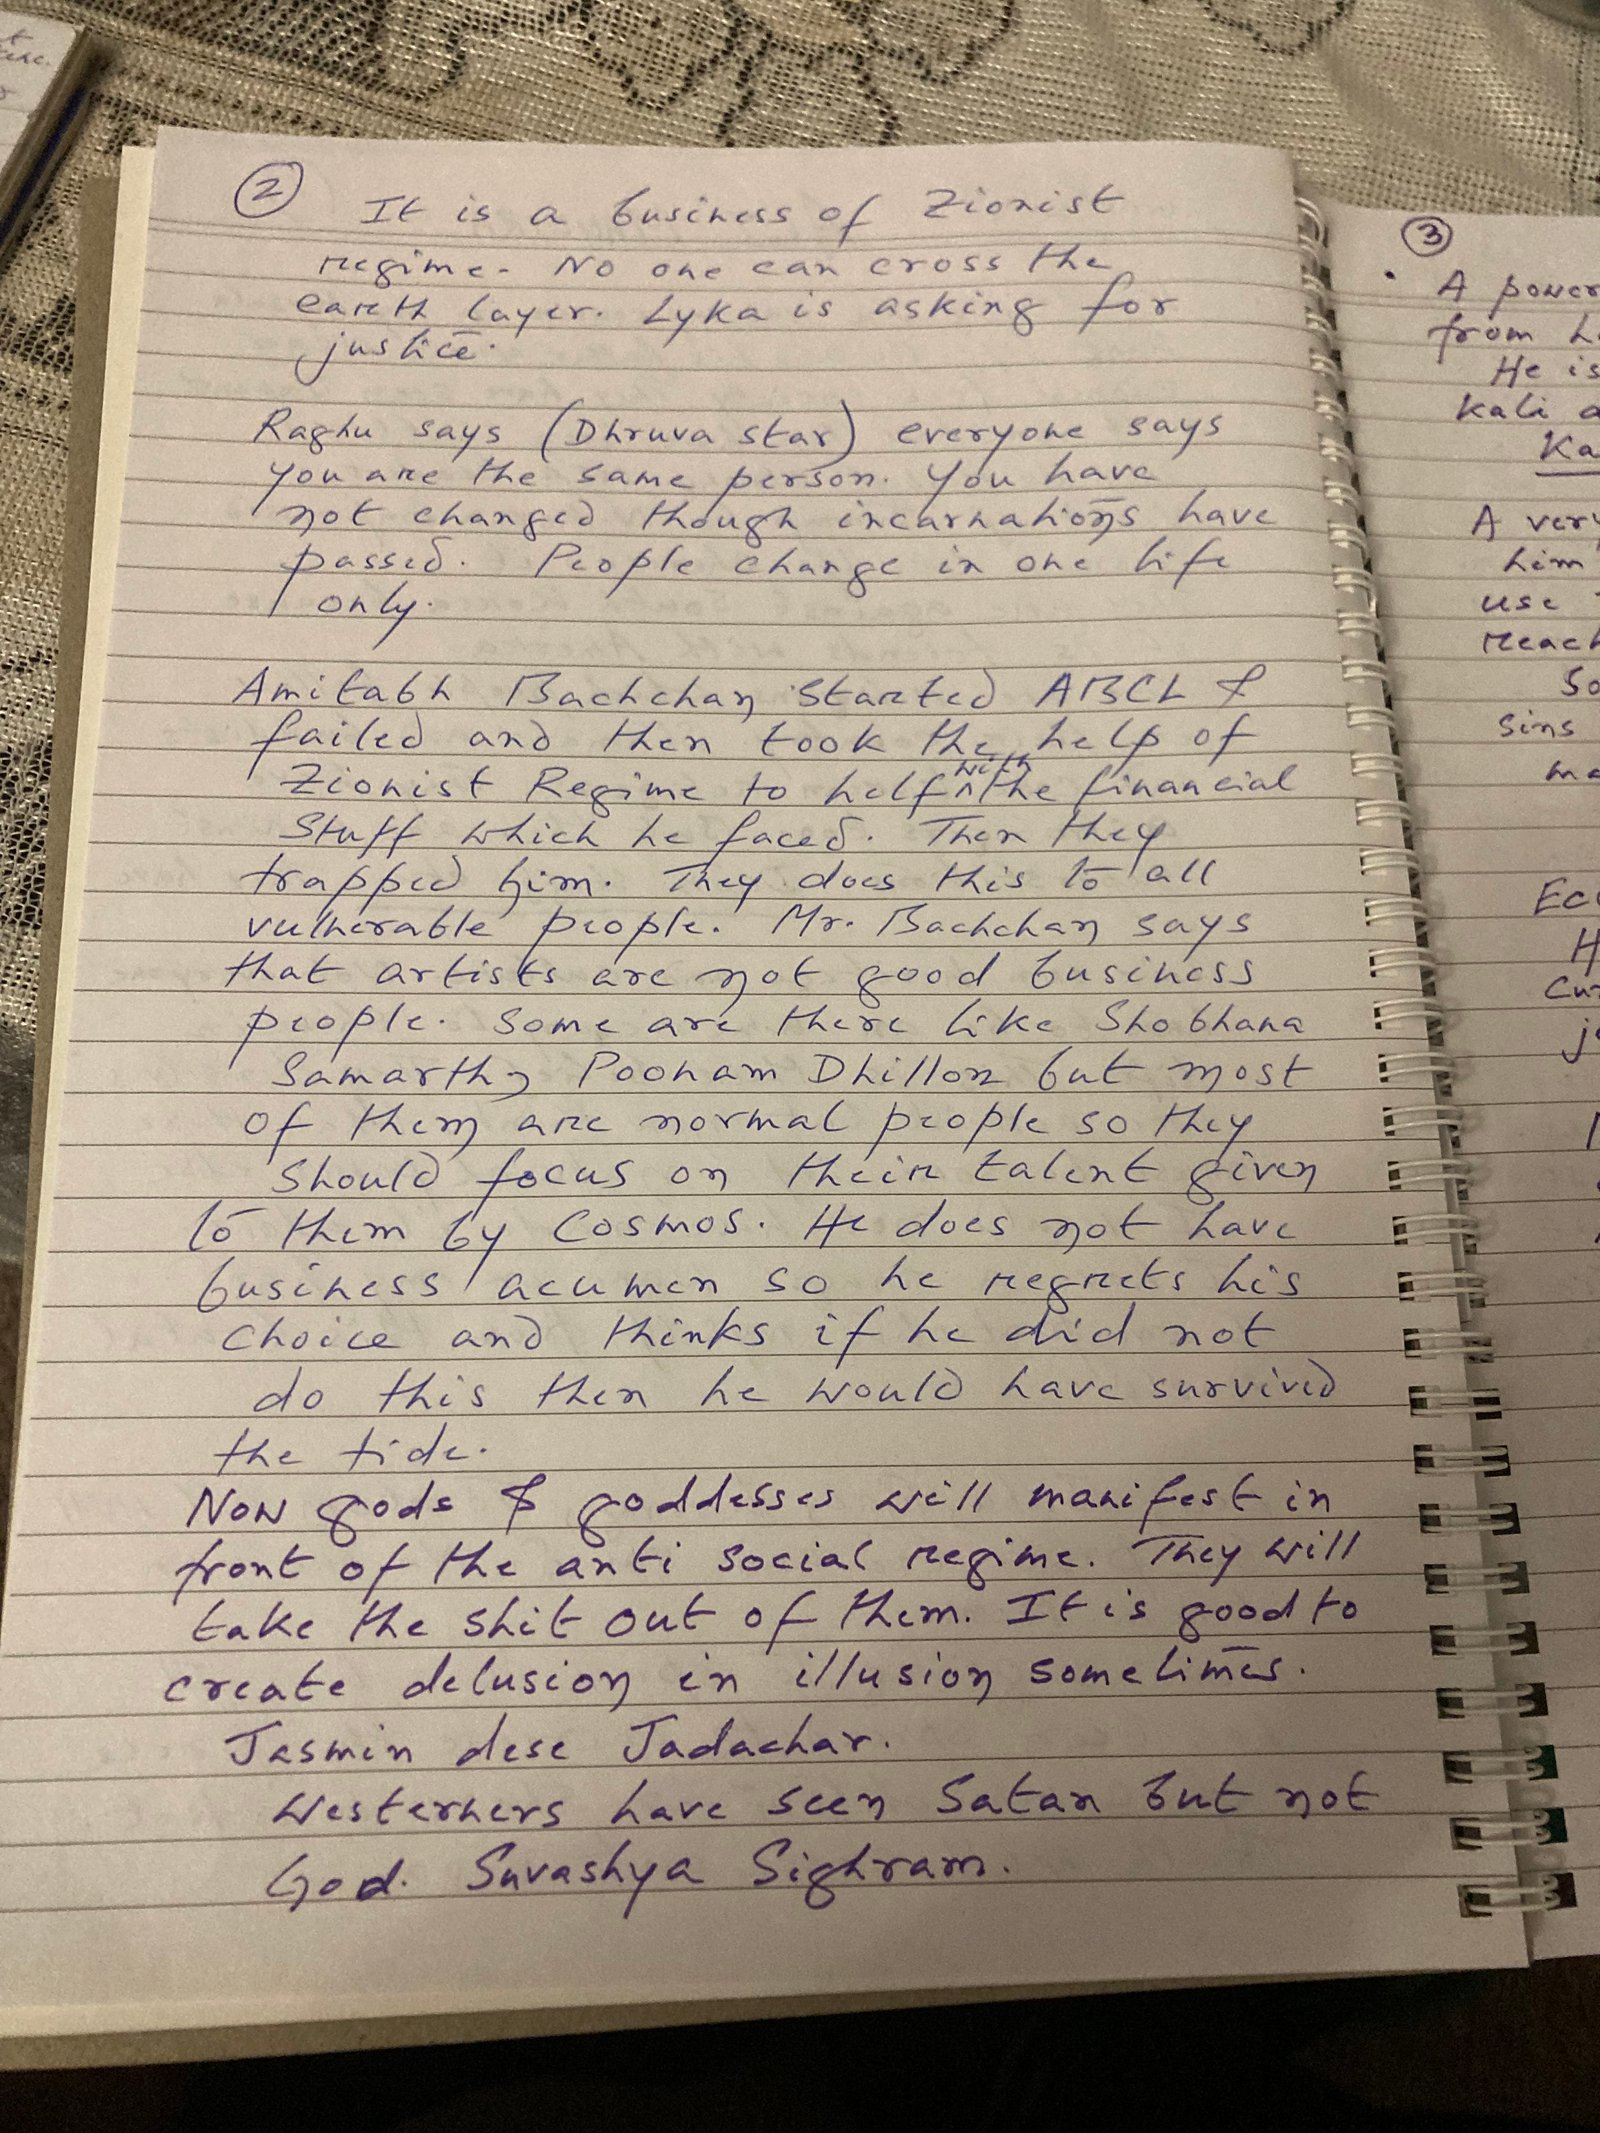 2
It is a business of Zionist
regime. No one can cross the
earth layer. Lyka is asking for
justice.
Raghu says (Dhruva star) everyone says
you are the same person. You have
not changed though incarnations have
passed. People change in one life
only.
Amitabh Bachchan started ABCL &
failed and then took the help of
Zionist Regime to help with the financial
stuff which he faced. Then they
trapped him. They does this to all
vulnerable people. Mr. Bachchan says
that artists are not good business
people. Some are there like Shobhana
Samarth, Poonam Dhillon but most
of them are normal people so they
should focus on their talent given
to them by Cosmos. He does not have
business acumen so he regrets his
choice and thinks if he did not
do this then he would have survived
the tide.
Now gods & goddesses will manifest in
front of the anti social regime. They will
take the shit out of them. It is good to
create delusion in illusion sometimes.
Jasmin dese Jadachar.
Westerners have seen Satan but not
God. Suvashya Sighram.
3
A power
from
He is
Kali
A very
him
use
reach
So
sins